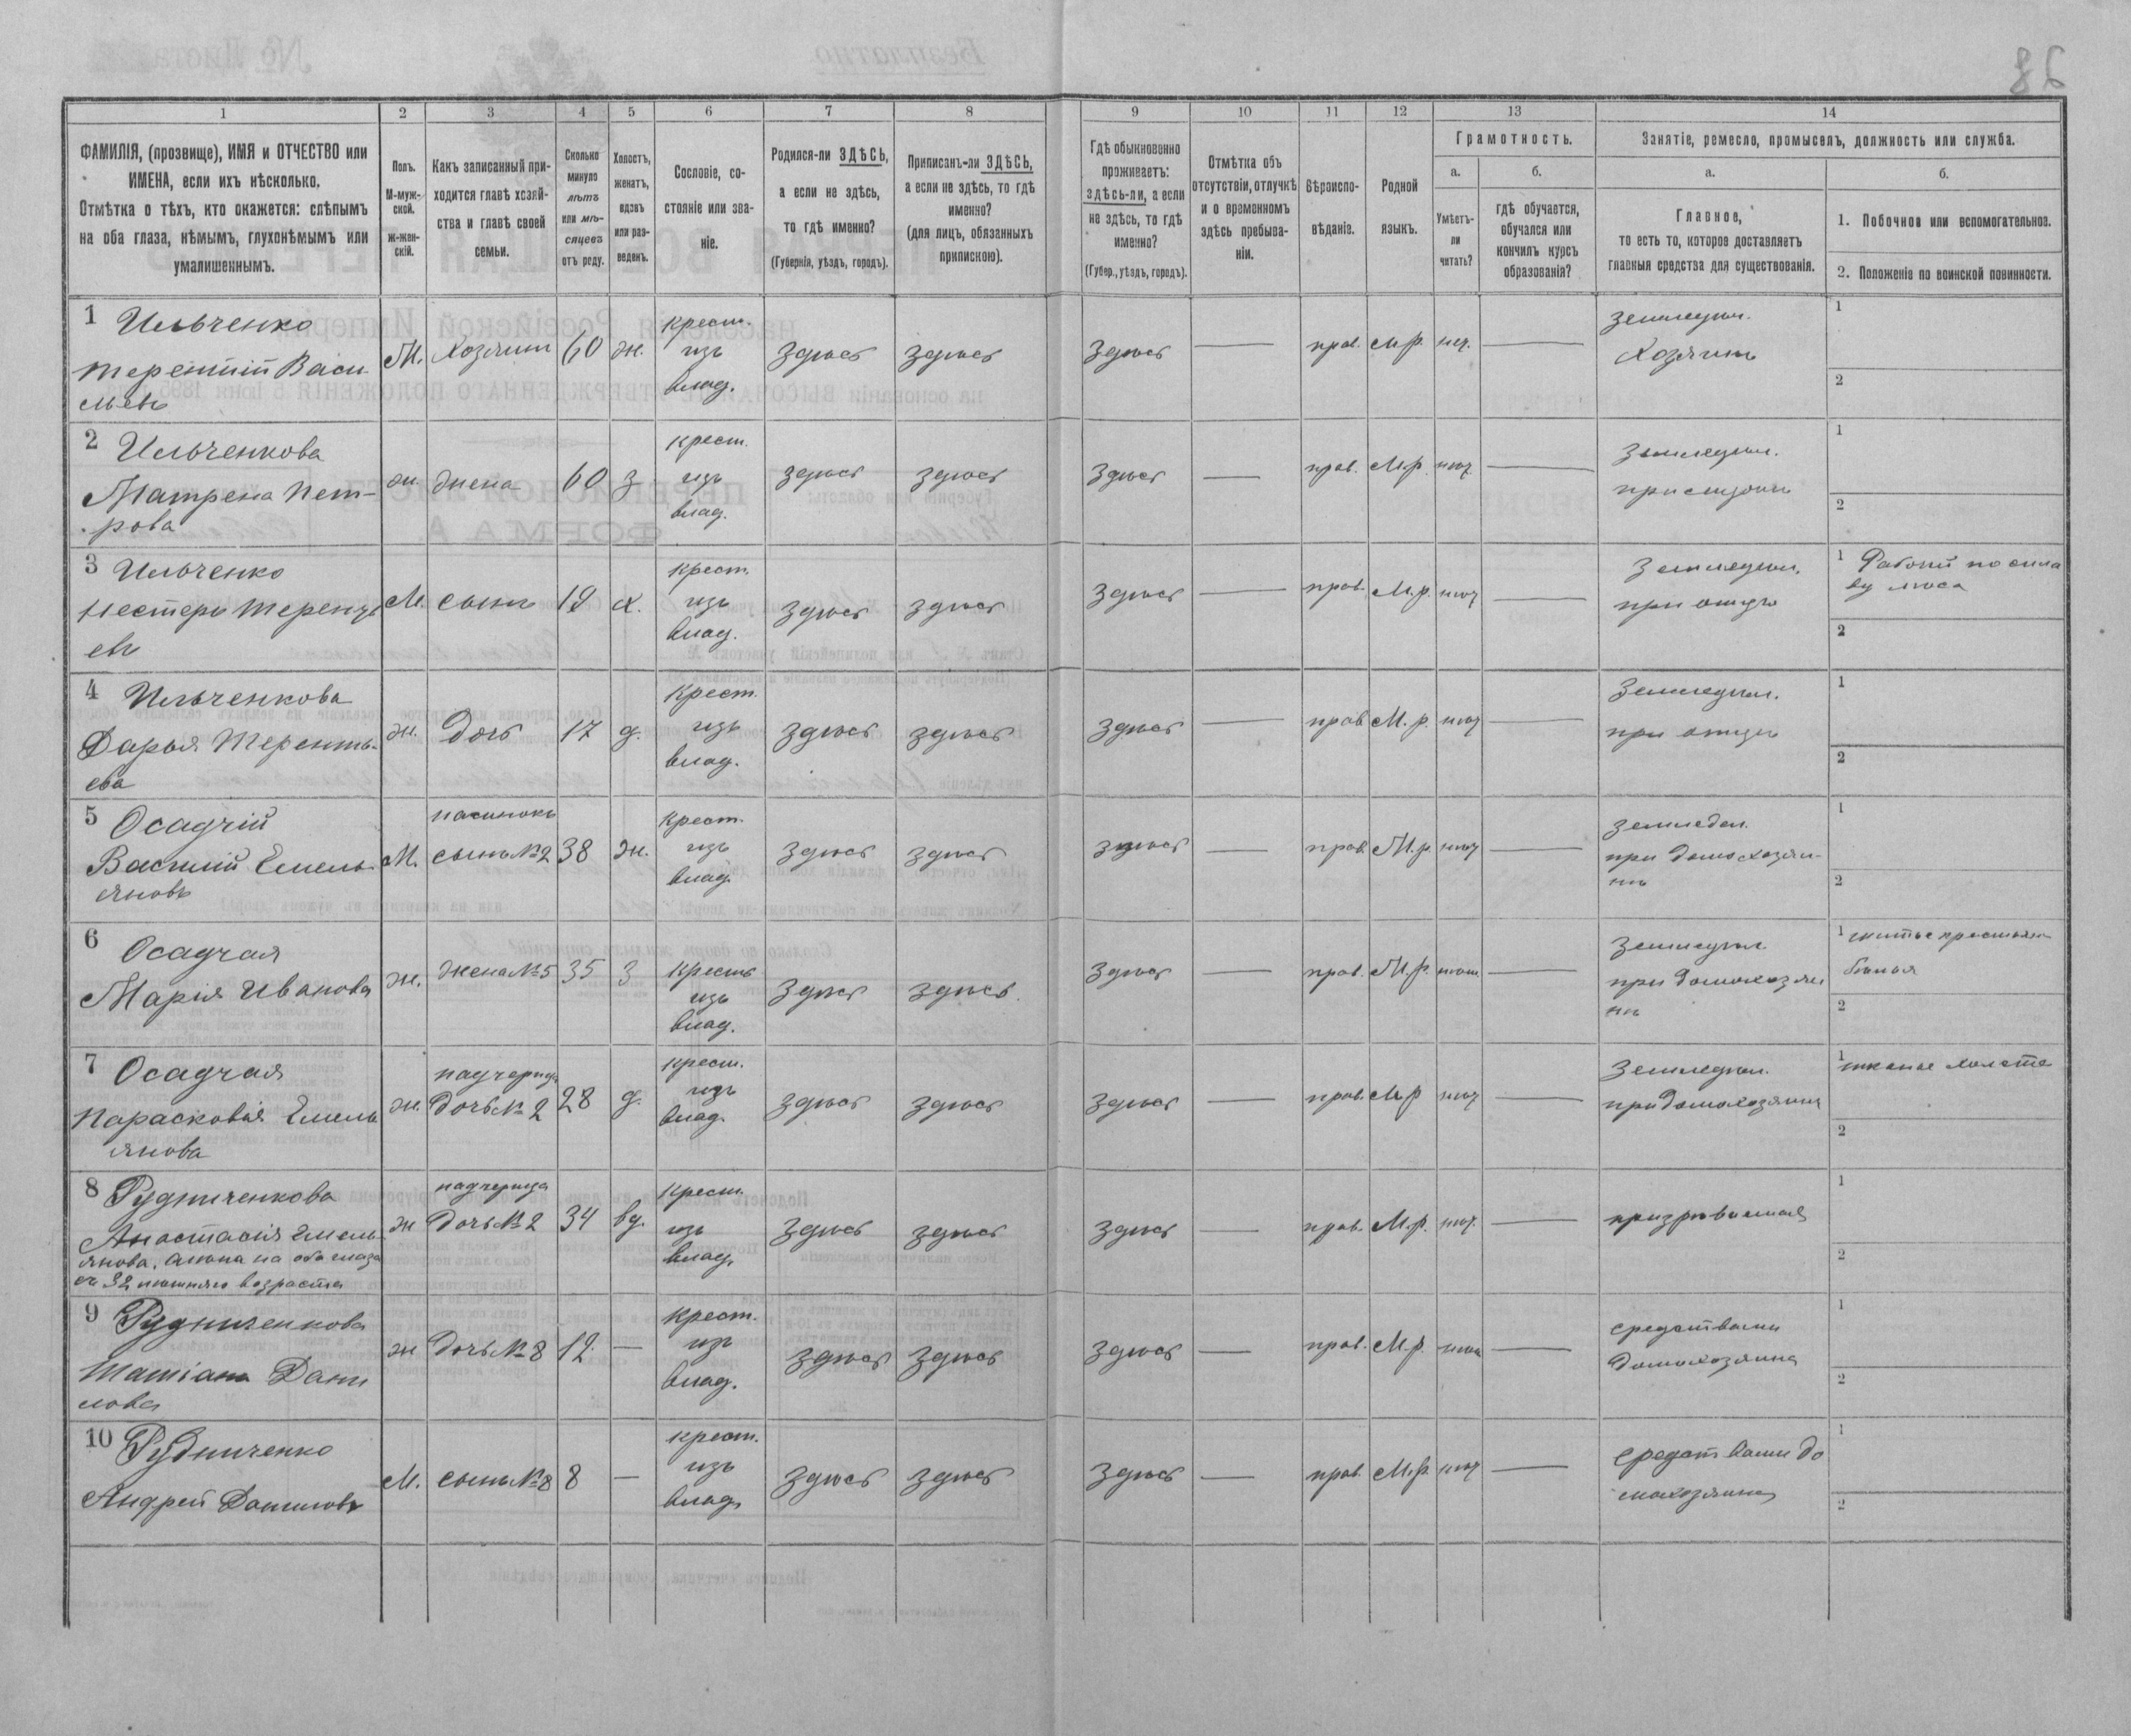 1
2
3
4
5
6
7
8
9
10
11
12
13
14
ФАМИЛІЯ, (прозвище), ИМЯ и ОТЧЕСТВО или
ИМЕНА, если ихъ нѣсколько.
Отмѣтка о тѣхъ, кто окажется: слѣпымъ
на оба глаза, нѣмымъ, глухонѣмымъ или
умалишеннымъ.
Полъ.
М-муж-
ской.
Ж-жен-
скій.
Какъ записанный при-
ходится главѣ хозяй-
ства и главѣ своей
семьи.
Сколько
минуло
лѣтъ
или мѣ-
сяцевъ
отъ роду.
Холостъ,
женатъ,
вдовъ
или раз-
веденъ.
Сословіе, со-
стояніе или зва-
ніе.
Родился-ли ЗДѢСЬ,
а если не здѣсь,
то гдѣ именно?
(Губернія, уѣздъ, городъ).
Приписанъ-ли ЗДѢСЬ,
а если не здѣсь, то гдѣ
именно?
(для лицъ, обязанныхъ
припискою).
Гдѣ обыкновенно
проживаетъ:
здѣсь-ли, а если
не здѣсь, то гдѣ
именно?
(Губер., уѣздъ, городъ).
Отмѣтка объ
отсутствіи, отлучкѣ
и о временномъ
здѣсь пребыва-
ніи.
Вѣроиспо-
вѣданіе.
Родной
языкъ.
Грамотность.
а.
Умѣетъ-
ли
читать?
б.
гдѣ обучается,
обучался или
кончилъ курсъ
образованія?
Занятіе, ремесло, промыселъ, должность или служба.
а.
Главное,
то есть то, которое доставляетъ
главныя средства для существованія.
б.
1. Побочное или вспомогательное.
2. Положеніе по воинской повинности.
1 Ильченко
Терентій Васи
льевъ
М. Хозяинъ 60 ж.
крест.
изъ
влад.
здѣсь здѣсь здѣсь — прав. М.р. нѣт. —
земледѣл.
Хозяинъ
1
2
2 Ильченкова
Матрена Пет-
рова
ж. жена 60 з
крест.
изъ
влад.
здѣсь здѣсь здѣсь — прав. М.р. нѣт —
земледѣл.
при мужѣ
1
2
3 Ильченко
Нестеръ Теренть
евъ
М. сынъ 19 х.
крест.
изъ
влад.
здѣсь здѣсь здѣсь — прав. М.р. нѣт —
земледѣл.
при отцѣ
1 Рабочій по спла
ву лѣса
2
4 Ильченкова
Дарья Теренть-
ева
ж. дочь 17 д.
крест.
изъ
влад.
здѣсь здѣсь здѣсь — прав М.р. нѣт —
земледѣл.
при отцѣ
1
2
5 Осадчій
Василій Емель-
яновъ
М.
пасынокъ
сынъ №2 38 ж.
крест.
изъ
влад.
здѣсь здѣсь здѣсь — прав М.р. нѣт —
земледел.
при домохозяи-
нѣ
1
2
6 Осадчая
Марія Иванова
ж. жена №5 35 з
крестъ
изъ
влад.
здѣсь здѣсь здѣсь — прав. М.р. нѣт. —
земледѣл
при домохозяи
нѣ
1
2
7 Осадчая
Парасковія Емель
янова
ж.
падчерица
дочь № 2 28 д.
крест.
изъ
влад.
здѣсь здѣсь здѣсь — прав. М.р нѣт —
земледѣл.
при домохозяинѣ
1 тканье холста
2
8 Рудниченкова
Анастасія Емель-
янова, слѣпа на оба глаза
съ 32 лѣтняго возраста
ж
падчерица
дочь №2 34 вд.
крест.
изъ
влад.
здѣсь здѣсь здѣсь — прав. М.р. нѣт. —
призрѣваемая
1
2
9 Рудниченкова
Татіана Дани
лова
ж дочь №8 12. —
крест.
изъ
влад.
здѣсь здѣсь здѣсь — прав. М.р. нѣт —
средствами
домохозяина
1
2
10 Рудниченко
Андрей Даниловъ
М. сынъ №8 8 —
крест.
изъ
влад.
здѣсь здѣсь здѣсь — прав. М.р. нѣт —
средствами до
мохозяина
1
2